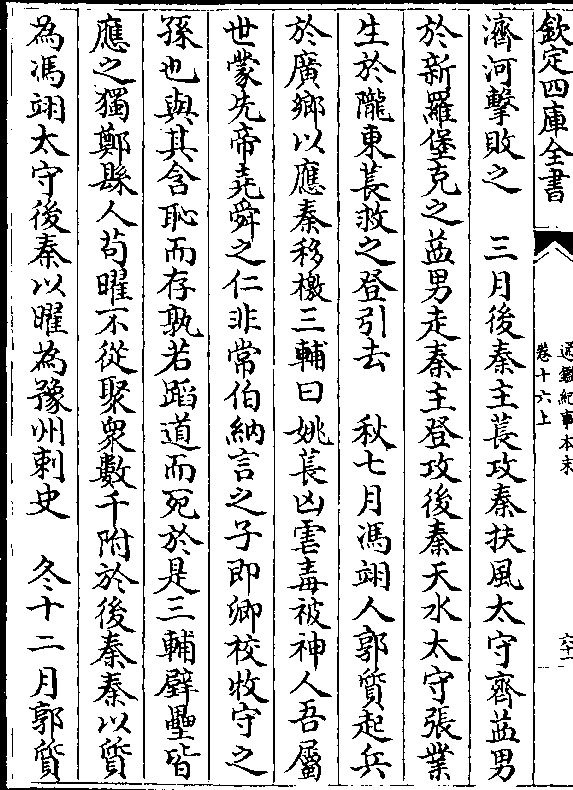 欽定四庫全書
通鑑紀事本末
卷十六上
六十一
濟河擊敗之　三月後秦主萇攻秦扶風太守齊益男
於新羅堡克之益男走秦主登攻後秦天水太守張業
生於隴東萇救之登引去　秋七月馮翊人郭質起兵
於廣鄉以應秦移檄三輔曰姚萇凶虐毒被神人吾屬
世蒙先帝堯舜之仁非常伯納言之子即卿校牧守之
孫也與其含恥而存孰若蹈道而死於是三輔壁壘皆
應之獨鄭縣人苟曜不從聚衆數千附於後秦秦以質
為馮翊太守後秦以曜為豫州刺史　冬十二月郭質